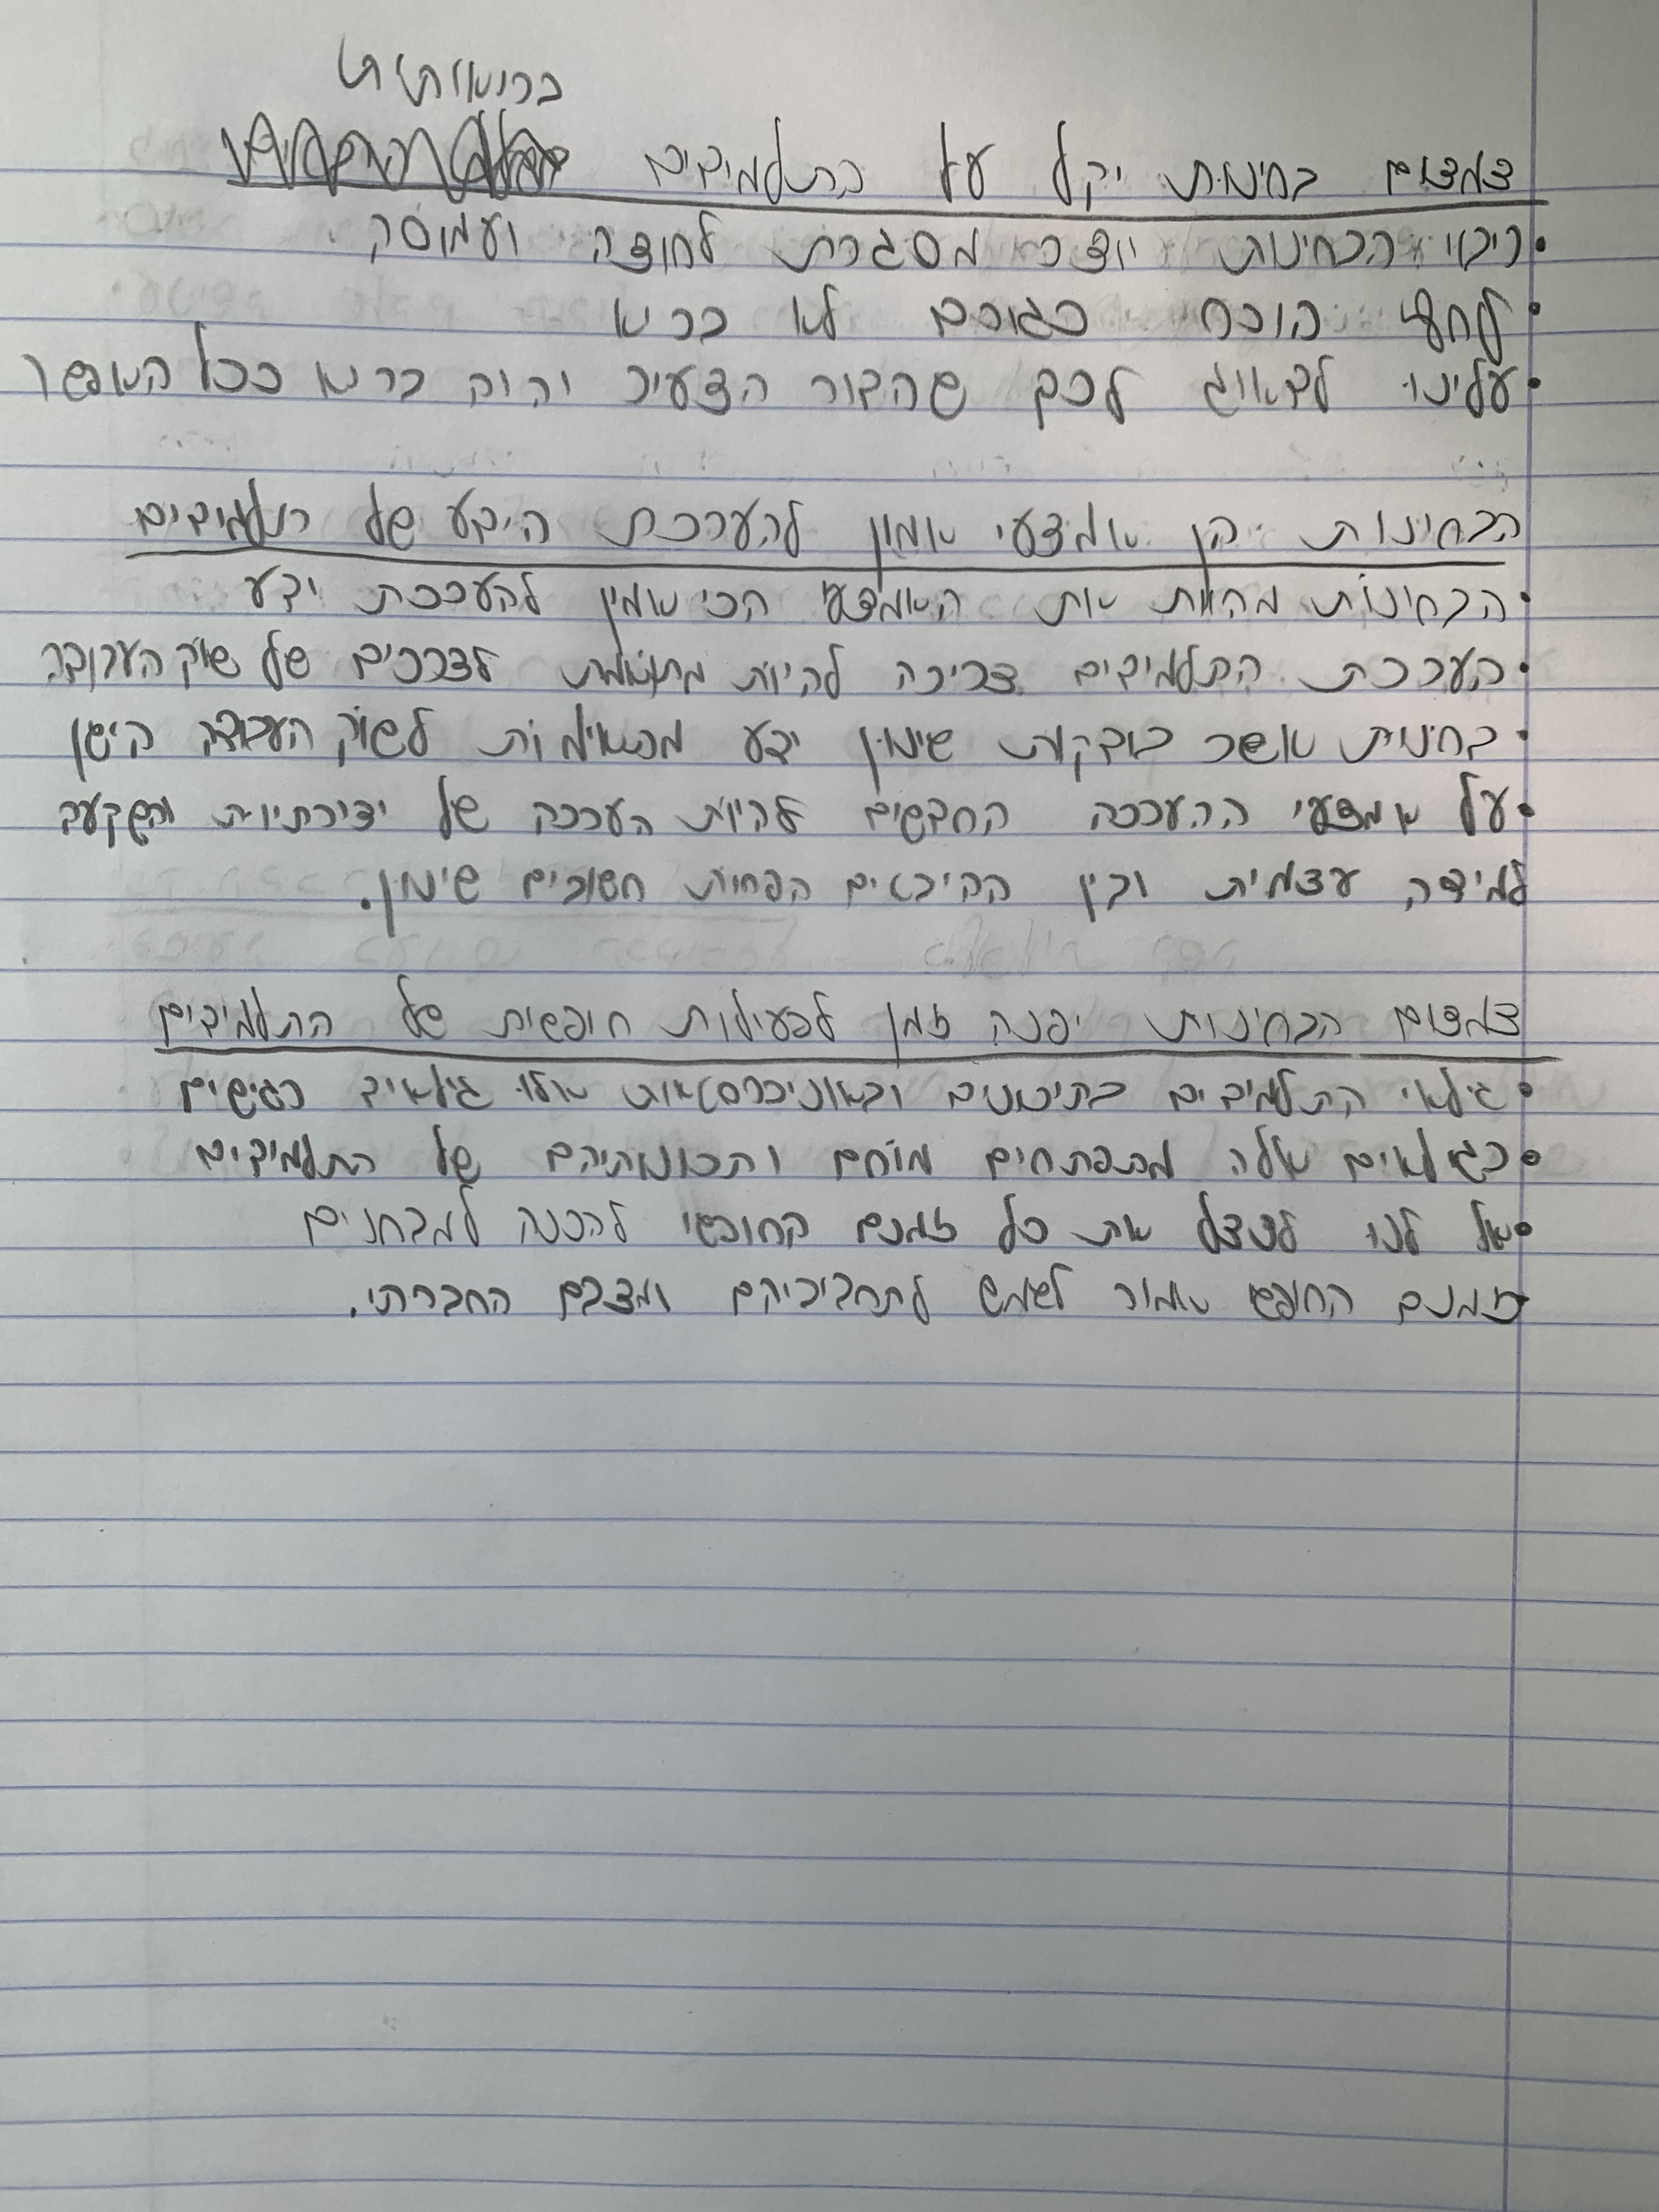 בריאותית
צמצום בחינות יקל על התלמידים
• ריבוי הבחינות יוצר מסגרת לחוצה ועמוסה
• לחץ הוכח כגורם לא בריא
• עלינו לדאוג לכך שהדור הצעיר יהיה בריא ככל האפשר
הבחינות הן אמצעי אמין להערכת הידע של התלמידים
• הבחינות מהוות את האמצעי הכי אמין להערכת ידע
• הערכת התלמידים צריכה להיות מתואמת לצרכים של שוק העבודה
• בחינות אשר בודקות שינון ידע מתאימות לשוק העבודה הישן
• על אמצעי ההערכה החדשים להיות הערכה של יצירתיות והשקעה
למידה עצמית ובין ההיבאים הפחות חשובים שינון.
צמצום הבחינות יפנה זמן לפעילות חופשית של התלמידים
• גילאי התלמידים בתיכונים ובאוניברסטאות אלו גילאים רגישים
• בגילאים אלה מתפתחים מוחם ותכונותיהם של התלמידים
• אל לנו לנצל את כל זמנם החופשי להכנה למבחנים
זמנם החופשי אמור לשמש לתחביביהם ומצבם החברתי.